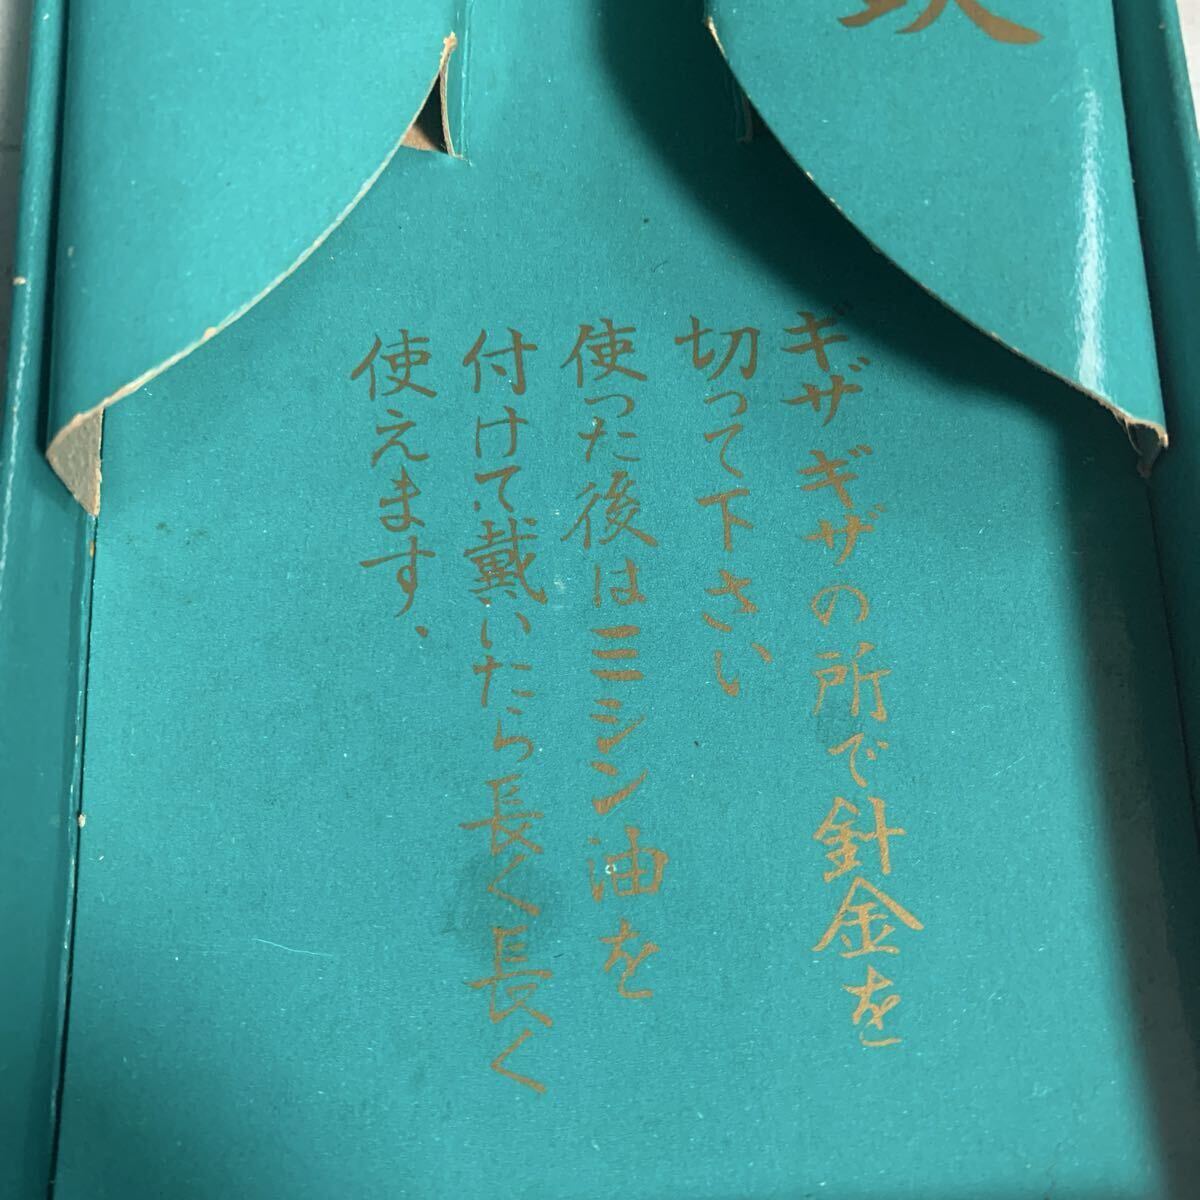 ギザギザの所で針金を
切って下さい
使った後はミシン油を
付けて戴いたら長く長く
使えます.